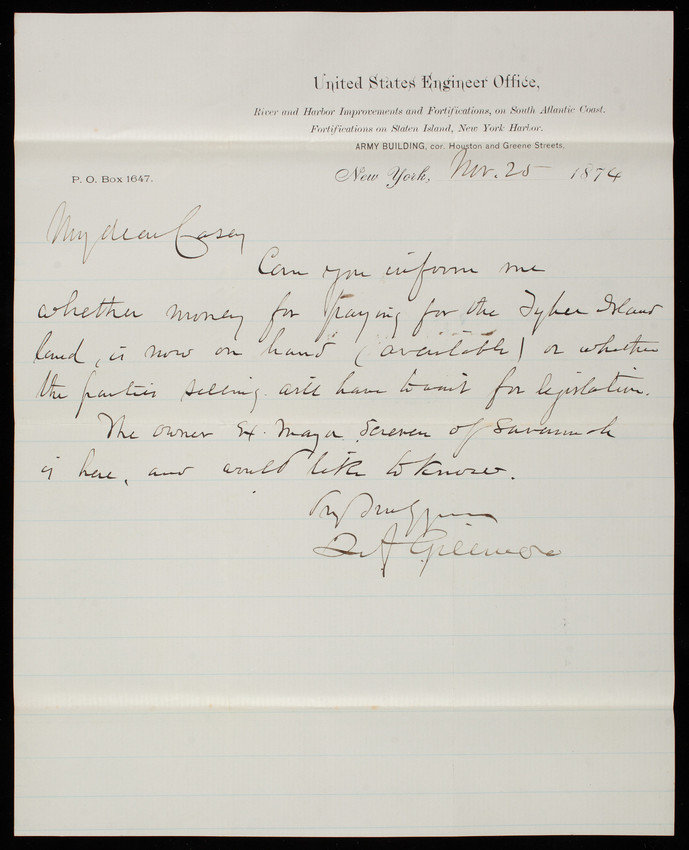 United States Engineer Office,
River and Harbor Improvements and Fortifications, on South Atlantic Coast.
Fortifications on Staten Island, New York Harbor.
ARMY BUILDING, cor. Houston and Greene Streets.
P. O. Box 1647.
New York, Nov. 25 1874
My dear Casey
Can you inform me
whether money for paying for the Tybee Island
land, is now on hand (available) or whether
the parties selling will have to wait for legislation.
The owner Ex. Mayor Screven of Savannah
is here, and would like to know.
Very Truly yours
Q A Gillmore